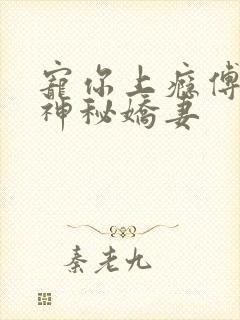 寵你上癮傅
神秘嬌妻
秦老九